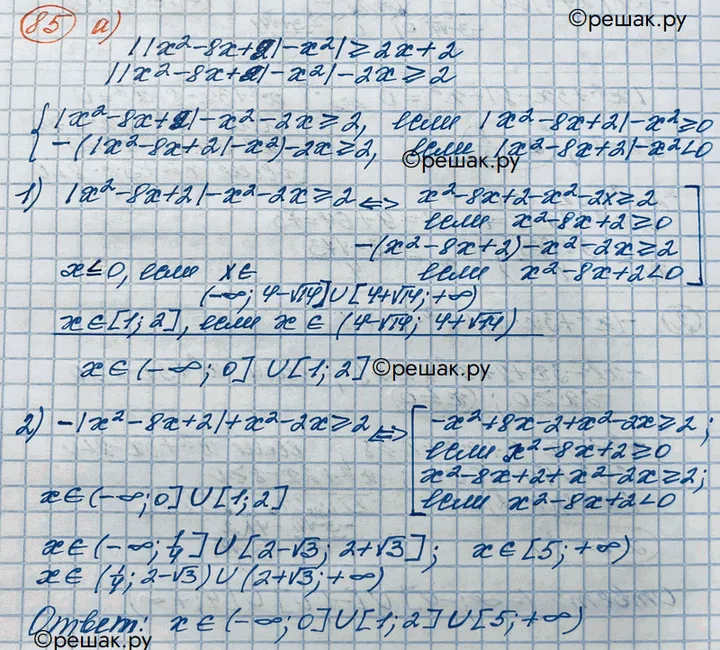 ©решак.ру
85 а) ||x²-8x+2|-x²|≥2x+2
||x²-8x+2|-x²|-2x≥2
{|x²-8x+2|-x²-2x≥2, если |x²-8x+2|-x²≥0
-(|x²-8x+2|-x²)-2x≥2, если |x²-8x+2|-x²<0
©решак.ру
1) |x²-8x+2|-x²-2x≥2 ⟺ x²-8x+2-x²-2x≥2
если x²-8x+2≥0
-(x²-8x+2)-x²-2x≥2
x≤0, если x∈ если x²-8x+2<0]
(-∞; 4-√14]∪[4+√14; +∞)
x∈[1;2], если x∈(4-√14; 4+√14)
x∈(-∞; 0]∪[1; 2] ©решак.ру
2) -|x²-8x+2|+x²-2x≥2 ⟺ [-x²+8x-2+x²-2x≥2;
если x²-8x+2≥0
x²-8x+2+x²-2x≥2;
x∈(-∞; 0]∪[1; 2] если x²-8x+2<0
x∈(-∞; 1/4]∪[2-√3; 2+√3]; x∈[5; +∞)
x∈(1/4; 2-√3)∪(2+√3; +∞)
Ответ: x∈(-∞; 0]∪[1; 2]∪[5; +∞)
©решак.ру